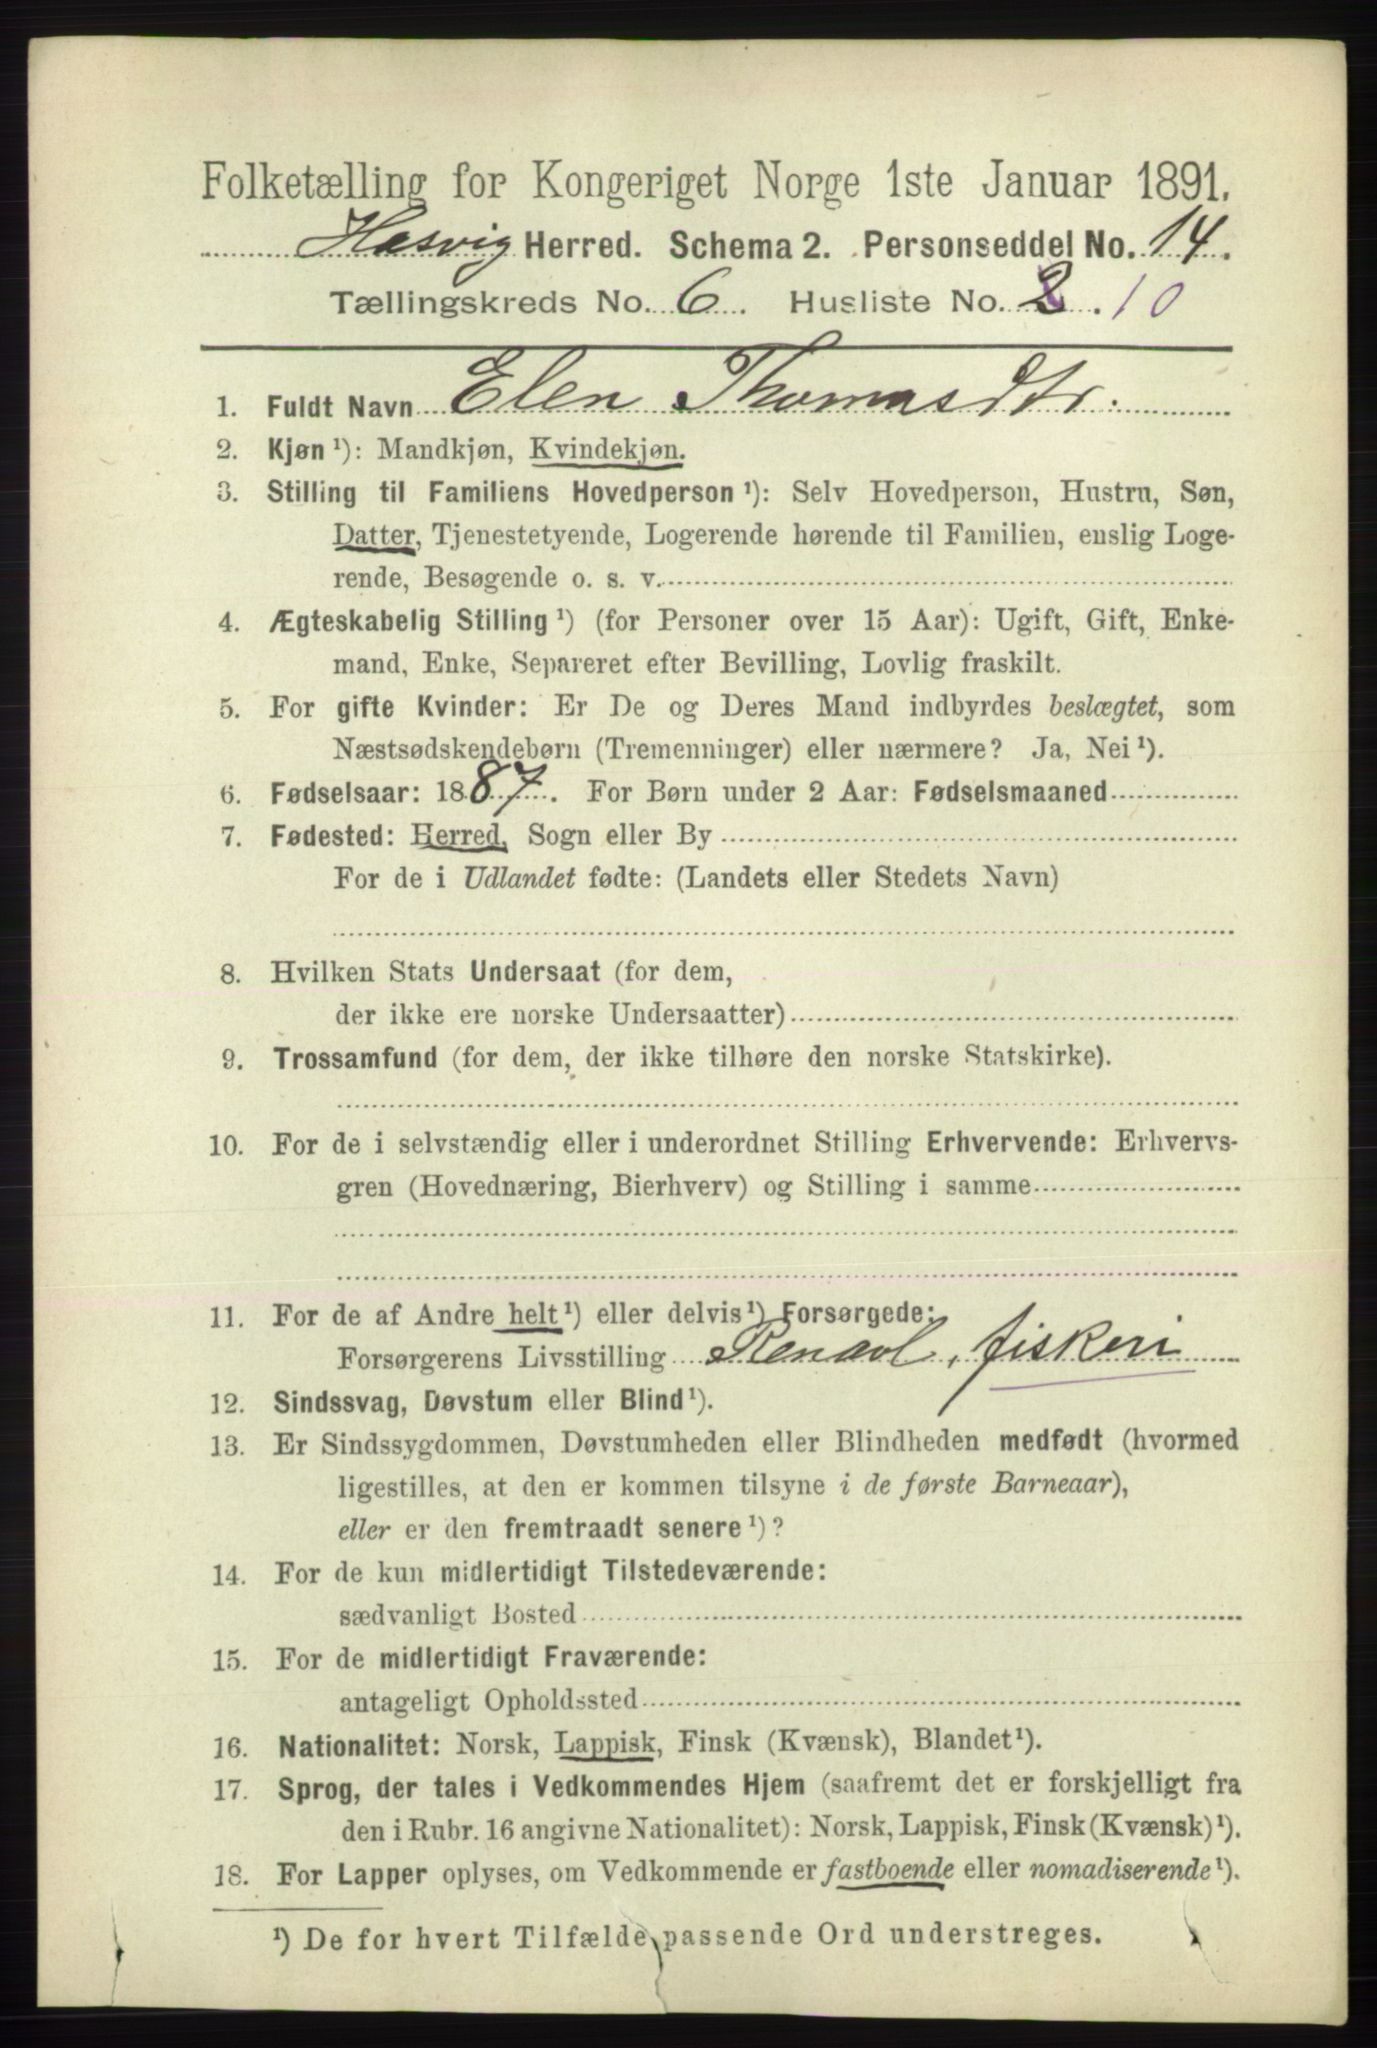 Folketælling for Kongeriget Norge 1ste Januar 1891.
Hasvig Herred. Schema 2. Personseddel No. 14.
Tællingskreds No. 6. Husliste No. 2. 10
1. Fuldt Navn Elen Thomasdtr.
2. Kjøn ¹): Mandkjøn, Kvindekjøn.
3. Stilling til Familiens Hovedperson ¹): Selv Hovedperson, Hustru, Søn,
Datter, Tjenestetyende, Logerende hørende til Familien, enslig Loge-
rende, Besøgende o. s. v.
4. Ægteskabelig Stilling ¹) (for Personer over 15 Aar): Ugift, Gift, Enke-
mand, Enke, Separeret efter Bevilling, Lovlig fraskilt.
5. For gifte Kvinder: Er De og Deres Mand indbyrdes beslægtet, som
Næstsødskendebørn (Tremenninger) eller nærmere? Ja, Nei ¹).
6. Fødselsaar: 1887. For Børn under 2 Aar: Fødselsmaaned
7. Fødested: Herred, Sogn eller By
For de i Udlandet fødte: (Landets eller Stedets Navn)
8. Hvilken Stats Undersaat (for dem,
der ikke ere norske Undersaatter)
9. Trossamfund (for dem, der ikke tilhøre den norske Statskirke).
10. For de i selvstændig eller i underordnet Stilling Erhvervende: Erhvervs-
gren (Hovednæring, Bierhverv) og Stilling i samme
11. For de af Andre helt ¹) eller delvis ¹) Forsørgede:
Forsørgerens Livsstilling Renavl, fiskeri
12. Sindssvag, Døvstum eller Blind ¹).
13. Er Sindssygdommen, Døvstumheden eller Blindheden medfødt (hvormed
ligestilles, at den er kommen tilsyne i de første Barneaar),
eller er den fremtraadt senere ¹)?
14. For de kun midlertidigt Tilstedeværende:
sædvanligt Bosted
15. For de midlertidigt Fraværende:
antageligt Opholdssted
16. Nationalitet: Norsk, Lappisk, Finsk (Kvænsk), Blandet ¹).
17. Sprog, der tales i Vedkommendes Hjem (saafremt det er forskjelligt fra
den i Rubr. 16 angivne Nationalitet): Norsk, Lappisk, Finsk (Kvænsk) ¹).
18. For Lapper oplyses, om Vedkommende er fastboende eller nomadiserende ¹).
¹) De for hvert Tilfælde passende Ord understreges.